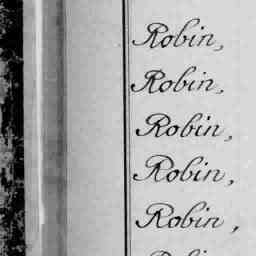 Robin,
Robin,
Robin,
Robin,
Robin,